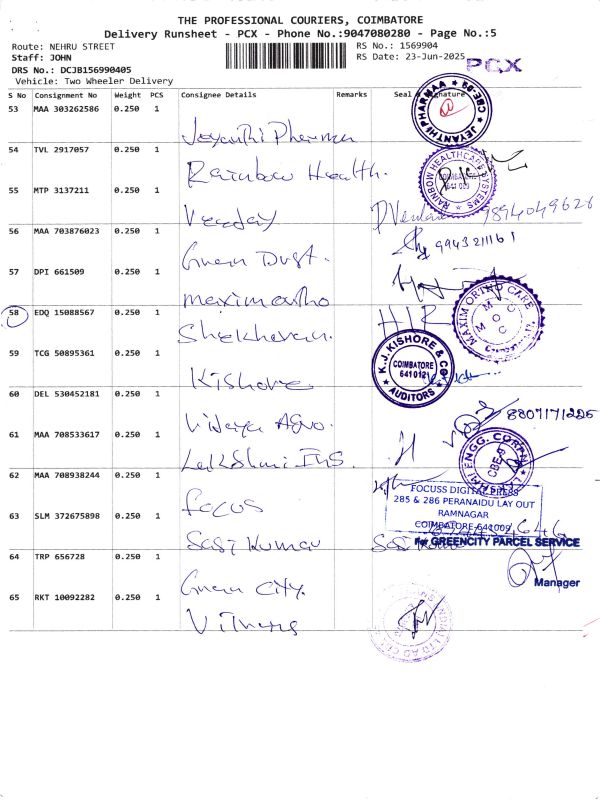 THE PROFESSIONAL COURIERS, COIMBATORE
Delivery Runsheet - PCX - Phone No.:9047080280 - Page No.:5
Route: NEHRU STREET
RS No.: 1569904
Staff: JOHN
RS Date: 23-Jun-2025
PCX
DRS No.: DCJB156990405
Vehicle: Two Wheeler Delivery
S No Consignment No Weight PCS Consignee Details Remarks Seal Signature
53 MAA 303262586 0.250 1
Jeyanthi Pharma
JEYANTHI PHARMAA CBE-09
54 TVL 2917057 0.250 1
Rainbow Health.
RAINBOW HEALTHCARE SYSTEMS
641 009
55 MTP 3137211 0.250 1
9894049626
56 MAA 703876023 0.250 1
Green Dust.
9943211161
57 DPI 661509 0.250 1
maximortho
MAXIM ORTHO CARE
M O C
58 EDQ 15088567 0.250 1
59 TCG 50895361 0.250 1
Kishore
K.J. KISHORE & CO
COIMBATORE
641 012
AUDITORS
60 DEL 530452181 0.250 1
Vijaya Agro.
8807171225
61 MAA 708533617 0.250 1
Lakshmi. INS.
ENGG. CORPN
CBE-9
62 MAA 708938244 0.250 1
focus
FOCUSS DIGITAL PRESS
285 & 286 PERANAIDU LAY OUT
RAMNAGAR
COIMBATORE-641009
63 SLM 372675898 0.250 1
Sasi Kumar
For GREENCITY PARCEL SERVICE
Manager
64 TRP 656728 0.250 1
Green City.
65 RKT 10092282 0.250 1